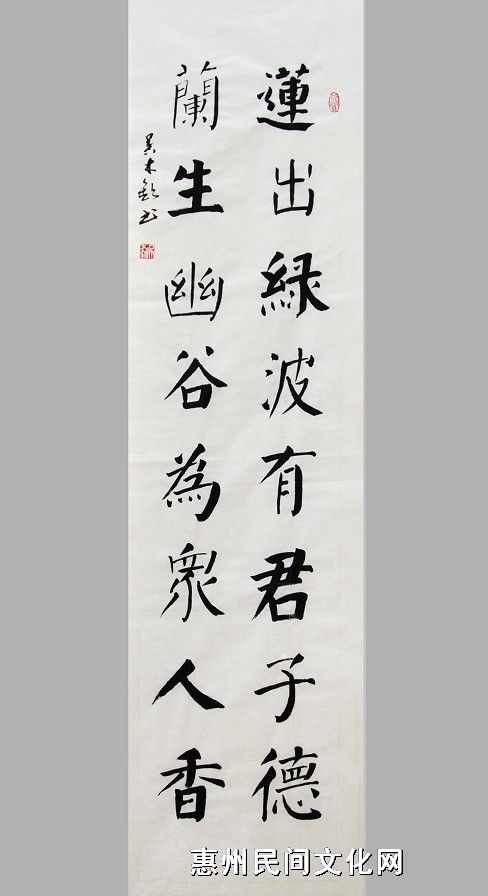 蓮出綠波有君子德
蘭生幽谷為衆人香
惠州民间文化网